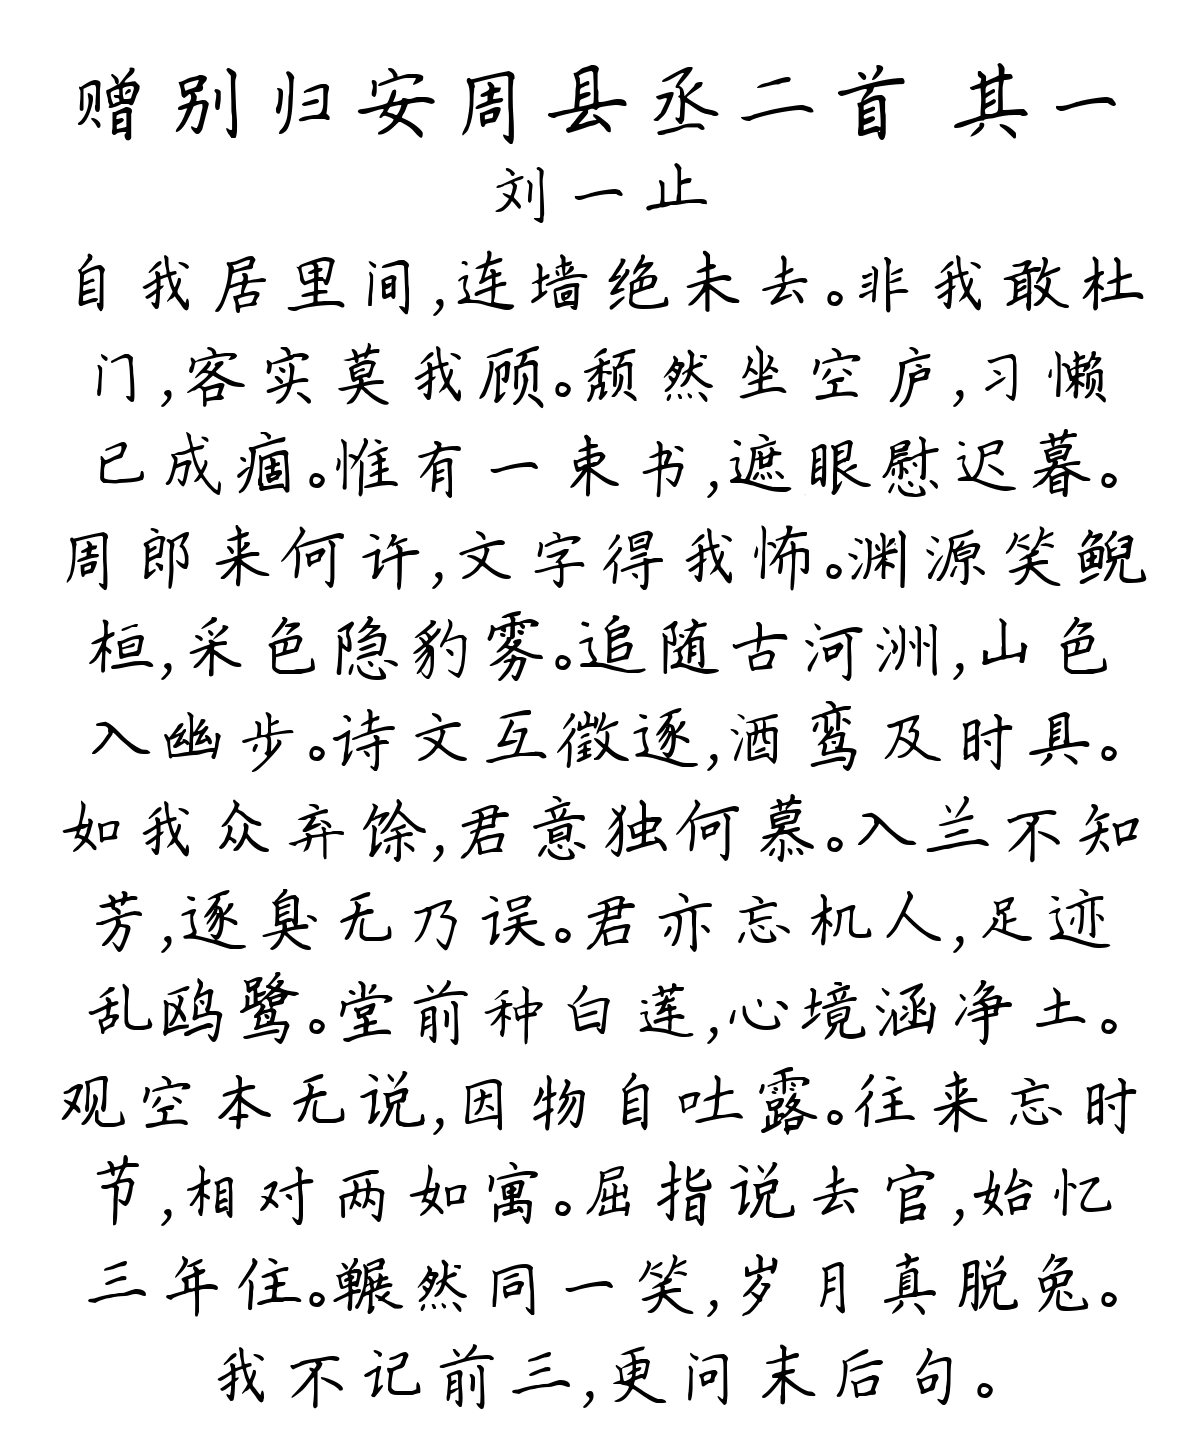 赠别归安周县丞二首 其一
刘一止
自我居里间,连墙绝未去。非我敢杜
门,客实莫我顾。颓然坐空庐,习懒
已成痼。惟有一束书,遮眼慰迟暮。
周郎来何许,文字得我怖。渊源笑鲵
桓,采色隐豹雾。追随古河洲,山色
入幽步。诗文互徵逐,酒鸾及时具。
如我众弃馀,君意独何慕。入兰不知
芳,逐臭无乃误。君亦忘机人,足迹
乱鸥鹭。堂前种白莲,心境涵净土。
观空本无说,因物自吐露。往来忘时
节,相对两如寓。屈指说去官,始忆
三年住。冁然同一笑,岁月真脱兔。
我不记前三,更问末后句。